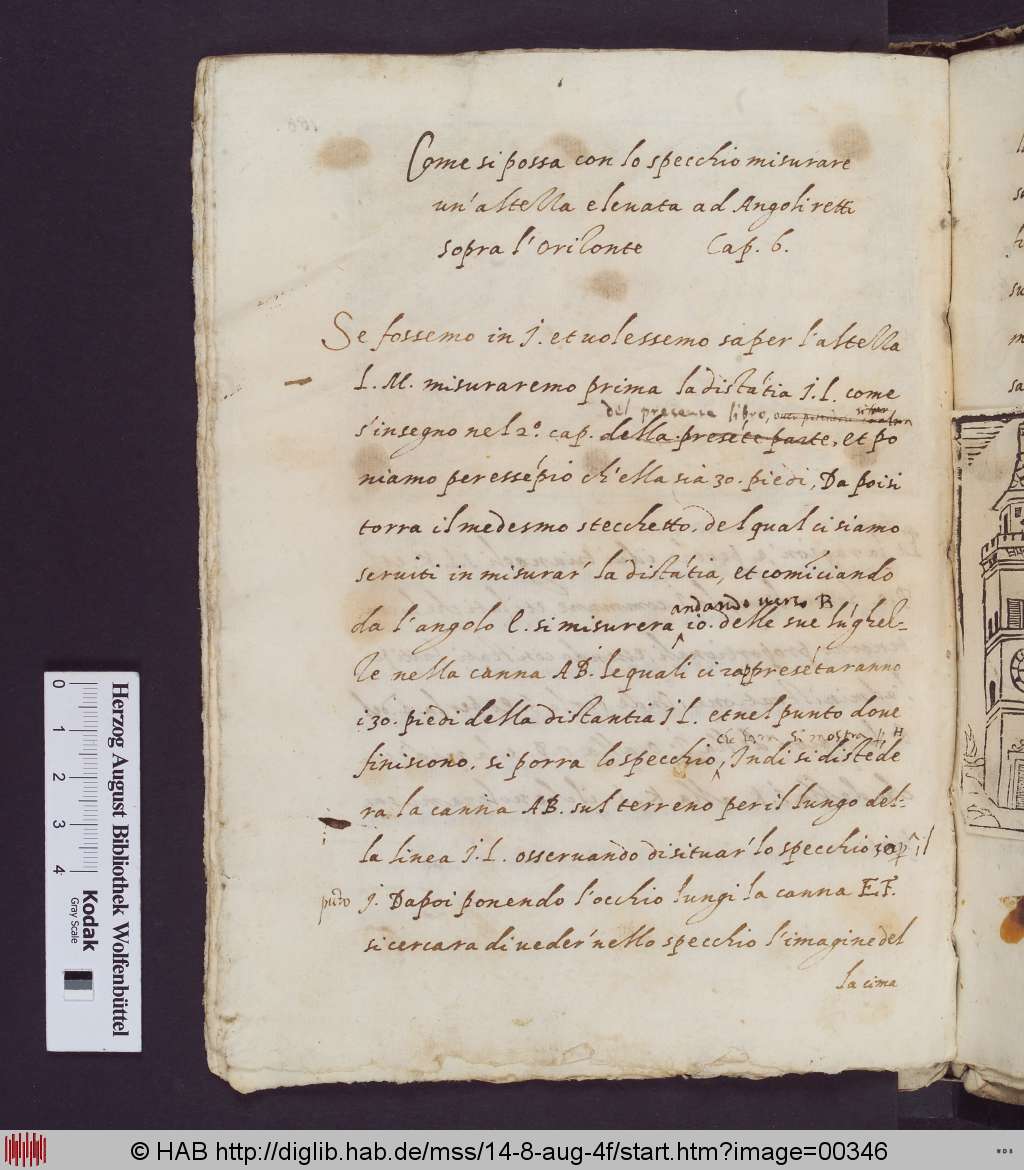 Come si possa con lo specchio misurare
un'altezza eleuata ad Angoli retti
sopra l'Orizonte Cap. 6.
Se fossemo in I. et uolessemo saper l'altezza
L. M. misuraremo prima la distãtia I. L. come
del presente libro,
s'insegno nel 2.º cap. della presẽte parte, et po
niamo per essẽpio ch'ella sia 30. piedi, Da poi si
torra il medesmo stecchetto, del qual ci siamo
seruiti in misurar' la distãtia, et comĩciando
andando uerso B
da l'angolo C. si misurera 10. delle sue lũghez-
ze nella canna AB. le quali ci rappresẽtaranno
i 30. piedi della distantia I L. et nel punto doue
si mostra H
finiscono, si porra lo specchio, Indi si distẽde
ra la canna AB. sul terreno per il lungo del-
la linea I. L. osseruando di situar' lo specchio il
I. Dapoi ponendo l'occhio lungi la canna E.F.
si cercara di ueder' nello specchio l'imagine del
la cima
Herzog August Bibliothek Wolfenbüttel
Kodak
Gray Scale
0 1 2 3 4
© HAB http://diglib.hab.de/mss/14-8-aug-4f/start.htm?image=00346